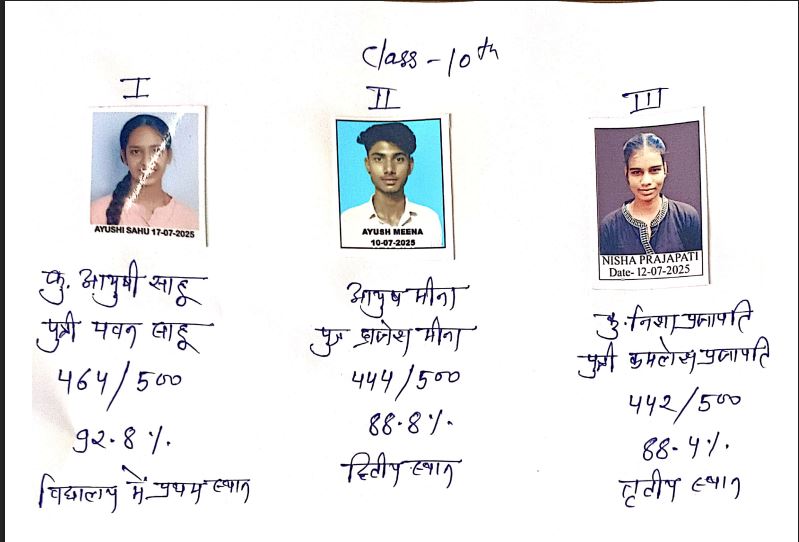 Class - 10th
I
AYUSHI SAHU 17-07-2025
कु. आयुषी साहू
पुत्री पवन साहू
464/500
92.8%.
विद्यालय में प्रथम स्थान
II
AYUSH MEENA
10-07-2025
आयुष मीना
पुत्र ब्रजेश मीना
444/500
88.8%.
द्वितीय स्थान
III
NISHA PRAJAPATI
Date- 12-07-2025
कु. निशा प्रजापति
पुत्री कमलेश प्रजापति
442/500
88.4%.
तृतीय स्थान